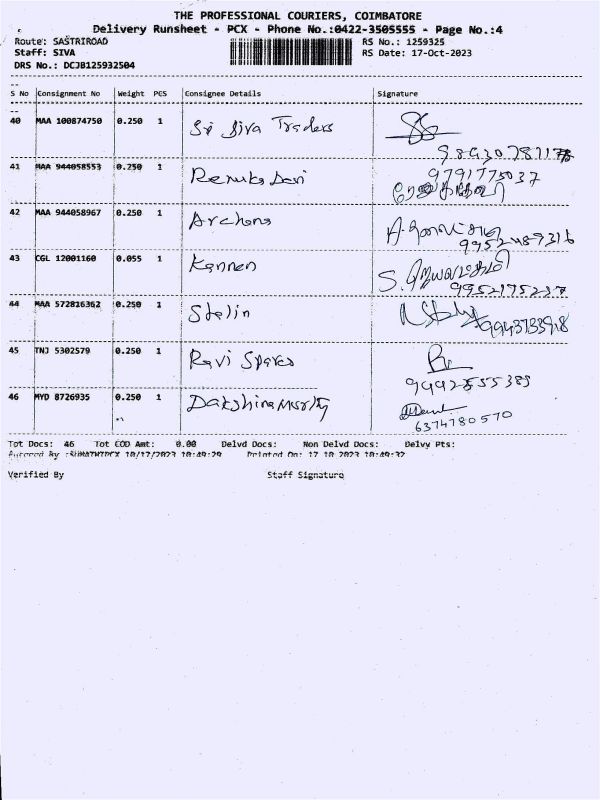 THE PROFESSIONAL COURIERS, COIMBATORE
Delivery Runsheet - PCX - Phone No.:0422-3505555 - Page No.:4
Route: SASTRIROAD RS No.: 1259325
Staff: SIVA RS Date: 17-Oct-2023
DRS No.: DCJB125932504
S No Consignment No Weight PCS Consignee Details Signature
40 MAA 100874750 0.250 1 Sri Siva Traders
41 MAA 944058553 0.250 1 Renuka Devi 9791775037
42 MAA 944058967 0.250 1 Archana
43 CGL 12001160 0.055 1 Kannan 9952175237
44 MAA 572816362 0.250 1 Stalin
45 TNJ 5302579 0.250 1 Ravi Spares
46 MYD 8726935 0.250 1 Dakshinamurthy
6374780570
Tot Docs: 46 Tot COD Amt: 0.00 Delvd Docs: Non Delvd Docs: Delvy Pts:
10/17/2023 10:49:29 Printed On: 17 10 2023 10:49:32
Verified By Staff Signature